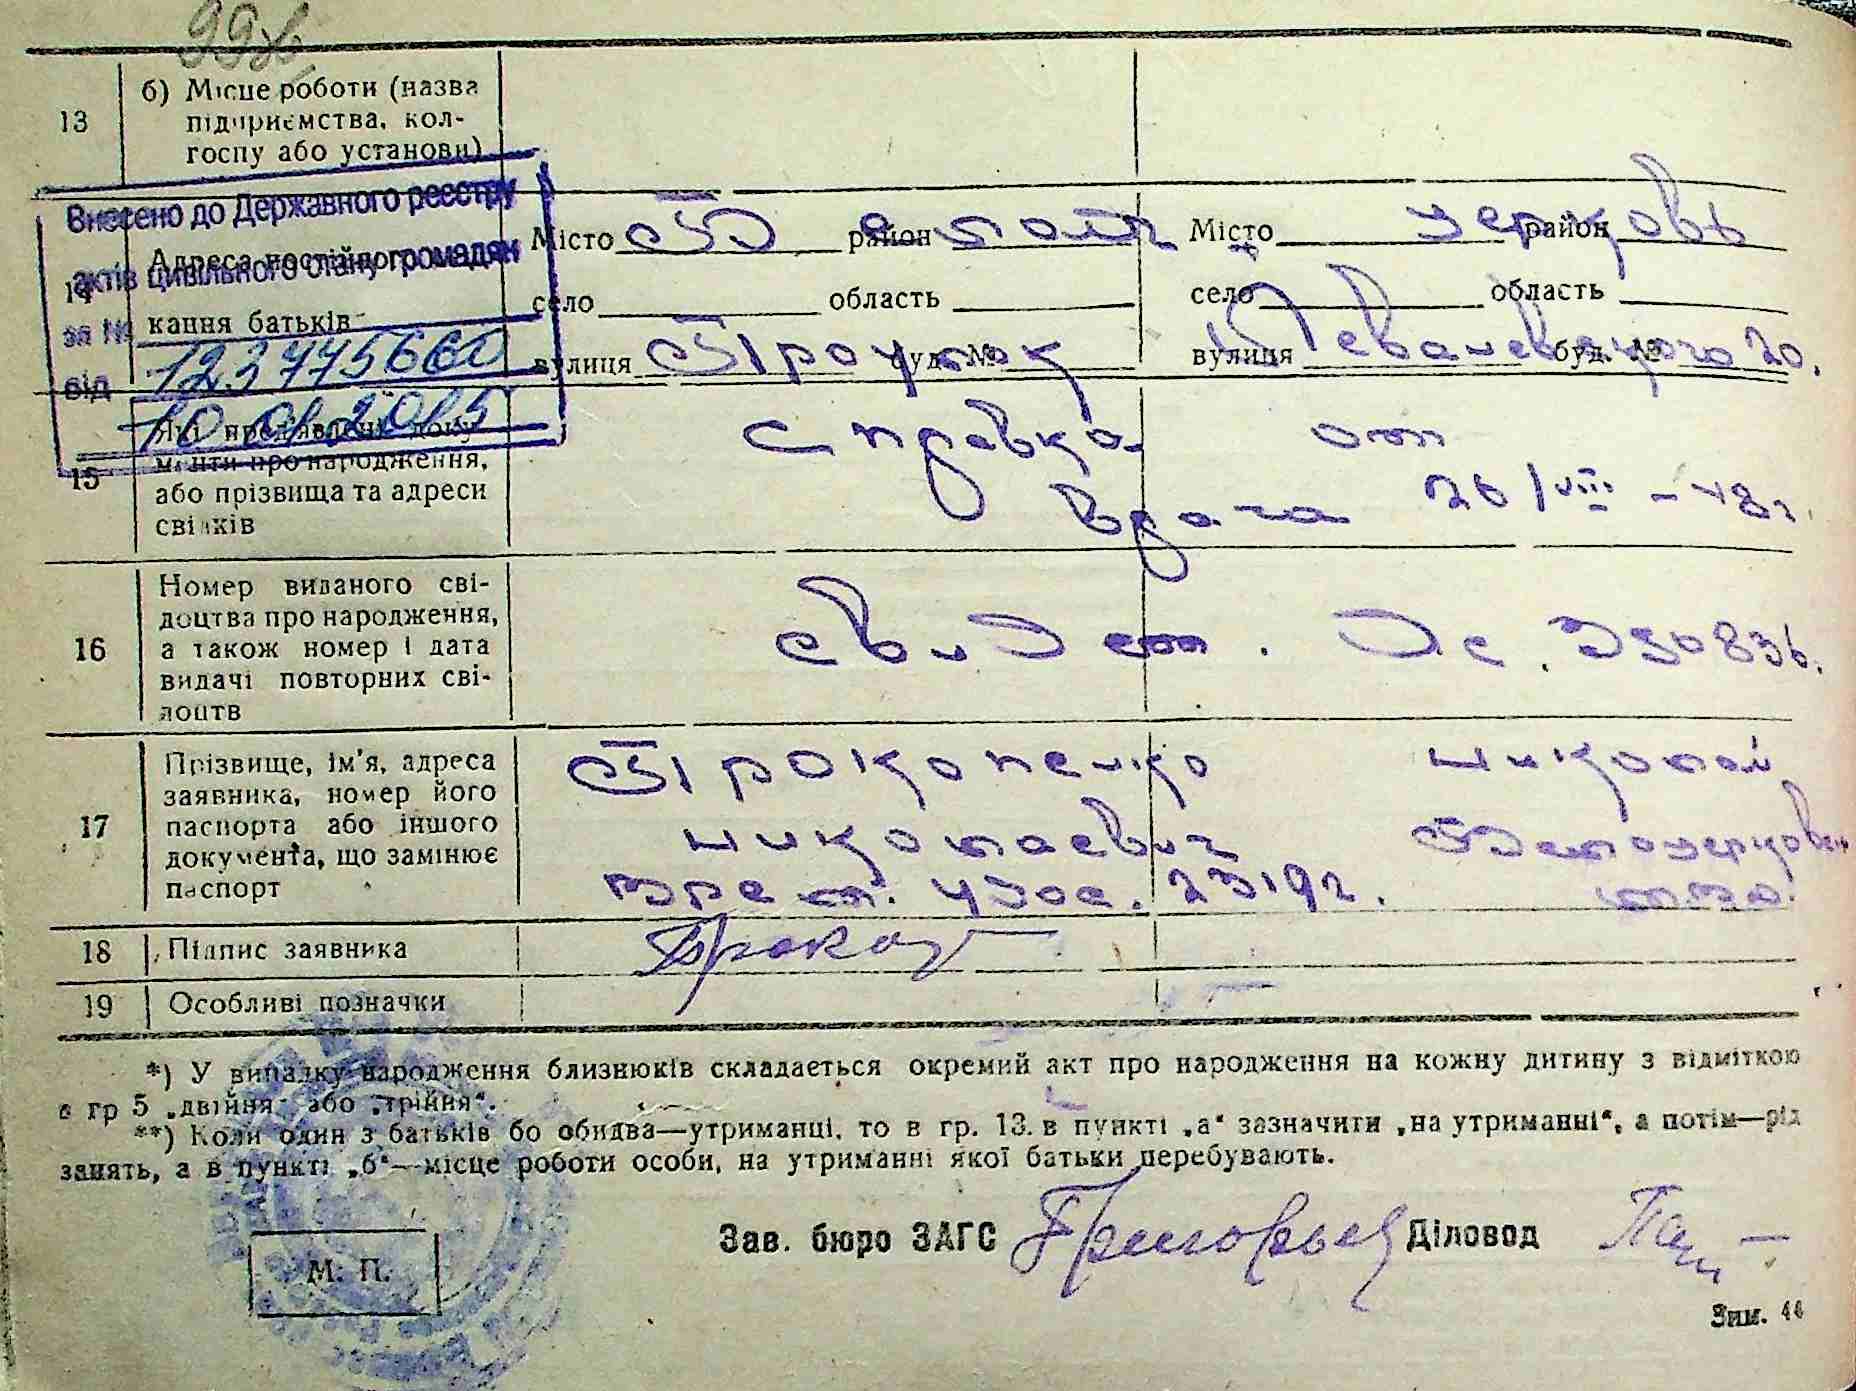 99
13
б) Місце роботи (назва
підприємства, кол-
госпу або установи)
Внесено до Державного реєстру
актів цивільного стану громадян
за №
від 10 01 2015
14
Адреса постійного
кання батьків
Місто Б елая район
село область
вулиця Проулок буд. №
Місто церковь район
село область
вулиця Леваневского 20. буд. №
15
Які пред'явлені доку-
менти про народження,
або прізвища та адреси
свідків
Справка от
врача 26/VIII – 48г.
16
Номер виданого сві-
доцтва про народження,
а також номер і дата
видачі повторних сві-
доцтв
Свидет.
17
Прізвище, ім'я, адреса
заявника, номер його
паспорта або іншого
документа, що замінює
паспорт
Прокопенко Николай
Николаевич Белоцерковск
врем. удос. 23192.
18
Підпис заявника
19
Особливі позначки
*) У випадку народження близнюків складається окремий акт про народження на кожну дитину з відміткою
в гр 5 „двійня" або „трійня".
**) Коли один з батьків бо обидва—утриманці, то в гр. 13 в пункті „а" зазначити „на утриманні", а потім—рід
занять, а в пункті „б"—місце роботи особи, на утриманні якої батьки перебувають.
Зав. бюро ЗАГС Григорьев Діловод
М. П.
Зим. 44